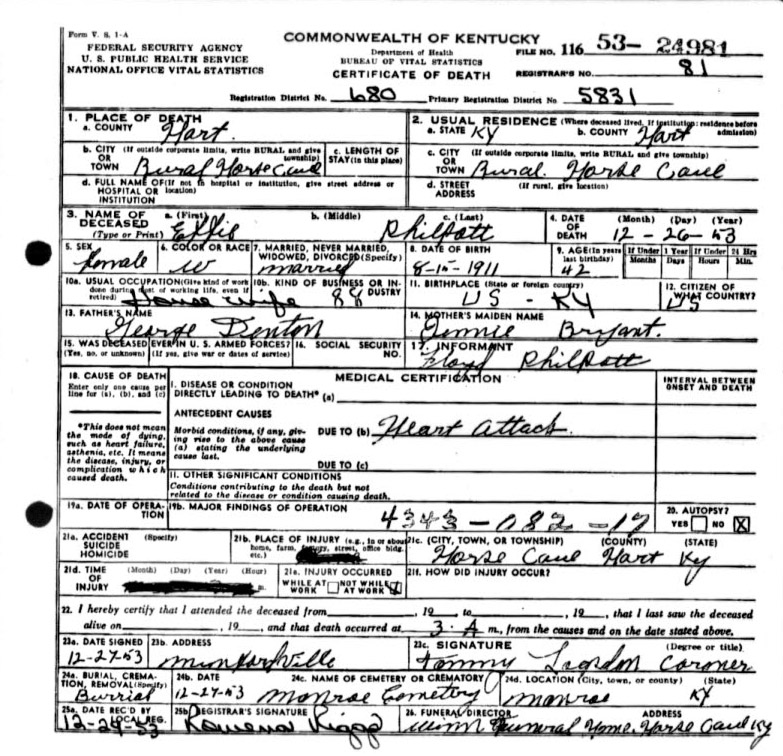 Form V. S. 1-A
FEDERAL SECURITY AGENCY
U. S. PUBLIC HEALTH SERVICE
NATIONAL OFFICE VITAL STATISTICS
COMMONWEALTH OF KENTUCKY
Department of Health
BUREAU OF VITAL STATISTICS
CERTIFICATE OF DEATH
FILE NO. 116 53-24981
REGISTRAR'S NO. 81
Registration District No. 680 Primary Registration District No. 5831
1. PLACE OF DEATH
a. COUNTY Hart.
2. USUAL RESIDENCE (Where deceased lived. If institution: residence before admission)
a. STATE Ky b. COUNTY Hart
b. CITY (If outside corporate limits, write RURAL and give township)
OR TOWN Rural Horse Cave
c. LENGTH OF STAY (in this place)
c. CITY (If outside corporate limits, write RURAL and give township)
OR TOWN Rural. Horse Cave
d. FULL NAME OF (If not in hospital or institution, give street address or location)
HOSPITAL OR INSTITUTION
d. STREET ADDRESS (If rural, give location)
3. NAME OF DECEASED (Type or Print)
a. (First) Effie b. (Middle) c. (Last) Philpott
4. DATE OF DEATH (Month) (Day) (Year)
12-26-53
5. SEX Female
6. COLOR OR RACE W
7. MARRIED, NEVER MARRIED, WIDOWED, DIVORCED (Specify) married
8. DATE OF BIRTH 8-15-1911
9. AGE (In years last birthday) 42
If Under 1 Months Days If Under 24 Hrs Hours Min.
10a. USUAL OCCUPATION (Give kind of work done during most of working life, even if retired) House wife
10b. KIND OF BUSINESS OR INDUSTRY 88
11. BIRTHPLACE (State or foreign country) US - KY
12. CITIZEN OF WHAT COUNTRY? US
13. FATHER'S NAME George Denton
14. MOTHER'S MAIDEN NAME Bryant.
15. WAS DECEASED EVER IN U. S. ARMED FORCES?
(Yes, no, or unknown) (If yes, give war or dates of service)
16. SOCIAL SECURITY NO.
17. INFORMANT Floyd Philpott
18. CAUSE OF DEATH
Enter only one cause per line for (a), (b), and (c)
*This does not mean the mode of dying, such as heart failure, asthenia, etc. It means the disease, injury, or complication which caused death.
MEDICAL CERTIFICATION
INTERVAL BETWEEN ONSET AND DEATH
I. DISEASE OR CONDITION
DIRECTLY LEADING TO DEATH* (a)
ANTECEDENT CAUSES
Morbid conditions, if any, giving rise to the above cause (a) stating the underlying cause last.
DUE TO (b) Heart attack
DUE TO (c)
II. OTHER SIGNIFICANT CONDITIONS
Conditions contributing to the death but not related to the disease or condition causing death.
19a. DATE OF OPERATION
19b. MAJOR FINDINGS OF OPERATION
4343-082-17
20. AUTOPSY?
YES NO X
21a. ACCIDENT SUICIDE HOMICIDE (Specify)
21b. PLACE OF INJURY (e.g., in or about home, farm, factory, street, office bldg. etc.)
21c. (CITY, TOWN, OR TOWNSHIP) (COUNTY) (STATE)
Horse Cave Hart Ky
21d. TIME OF INJURY (Month) (Day) (Year) (Hour) m.
21e. INJURY OCCURRED
WHILE AT WORK NOT WHILE AT WORK
21f. HOW DID INJURY OCCUR?
22. I hereby certify that I attended the deceased from , 19 to , 19 , that I last saw the deceased
alive on , 19 , and that death occurred at 3. A m., from the causes and on the date stated above.
23a. DATE SIGNED 12-27-53
23b. ADDRESS Munfordville
23c. SIGNATURE (Degree or title)
Tommy Coroner
24a. BURIAL, CREMATION, REMOVAL (Specify) Burrial
24b. DATE 12-27-53
24c. NAME OF CEMETERY OR CREMATORY Monroe Cemetery
24d. LOCATION (City, town, or county) (State)
Monroe Ky
25a. DATE REC'D BY LOCAL REG. 12-29-53
25b. REGISTRAR'S SIGNATURE Rowena
26. FUNERAL DIRECTOR ADDRESS
Winn Funeral Home. Horse Cave Ky